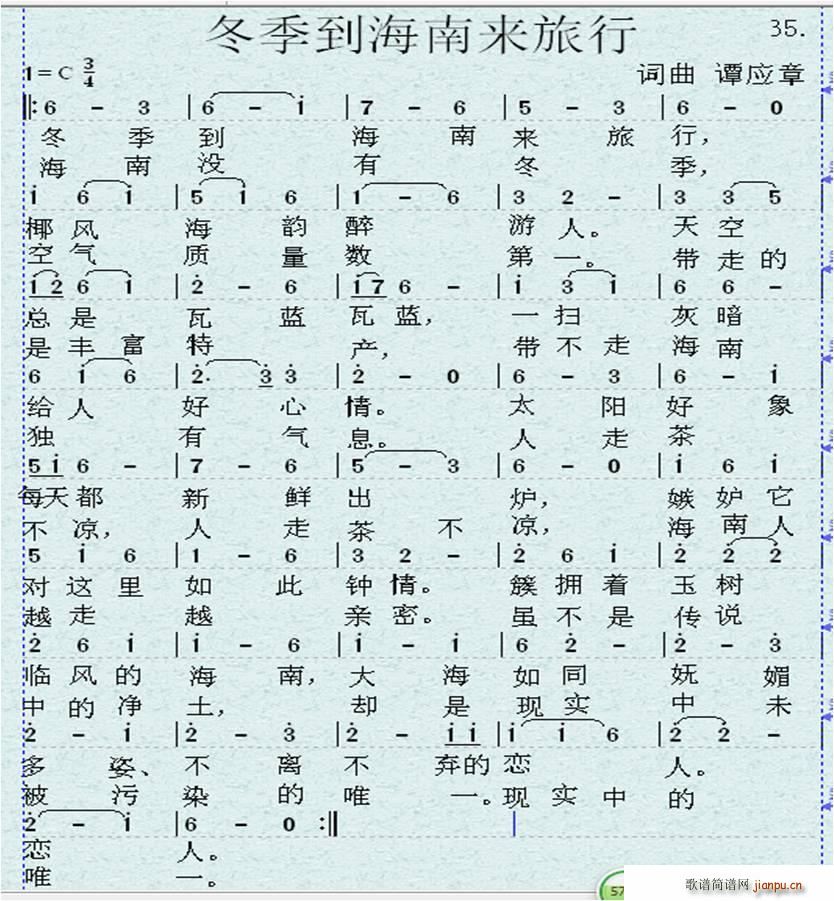 冬季到海南来旅行 35.
1=C 3/4 词曲 谭应章
‖: 6 - 3 | 6 - i | 7 - 6 | 5 - 3 | 6 - 0
冬 季 到 海 南 来 旅 行，
海 南 没 有 冬 季，
i 6 i | 5 i 6 | 1 - 6 | 3 2 - | 3 3 5
椰 风 海 韵 醉 游 人。 天 空
空 气 质 量 数 第 一。 带 走 的
i 2̇ 6 i | 2̇ - 6 | i 7 6 - | i 3 i | 6 6 -
总 是 瓦 蓝 瓦 蓝， 一 扫 灰 暗
是 丰 富 特 产， 带 不 走 海 南
6 i 6 | 2̇. 3̇ 3̇ | 2̇ - 0 | 6 - 3 | 6 - i
给 人 好 心 情。 太 阳 好 象
独 有 气 息。 人 走 茶
5 i 6 - | 7 - 6 | 5 - 3 | 6 - 0 | i 6 i
每天 都 新 鲜 出 炉， 嫉 妒 它
不 凉， 人 走 茶 不 凉， 海 南 人
5 i 6 | 1 - 6 | 3 2 - | 2̇ 6 i | 2̇ 2̇ 2̇
对 这 里 如 此 钟 情。 簇 拥 着 玉 树
越 走 越 亲 密。 虽 不 是 传 说
2̇ 6 i | i - 6 | i - i | 6 2̇ - | 2̇ - 3̇
临 风 的 海 南， 大 海 如 同 妩 媚
中 的 净 土， 却 是 现 实 中 未
2̇ - i | 2̇ - 3̇ | 2̇ - i i | i i 6 | 2̇ 2̇ -
多 姿、 不 离 不 弃的 恋 人。
被 污 染 的 唯 一。现 实 中 的
2̇ - i | 6 - 0 :‖
恋 人。
唯 一。
57
歌谱简谱网 jianpu.cn